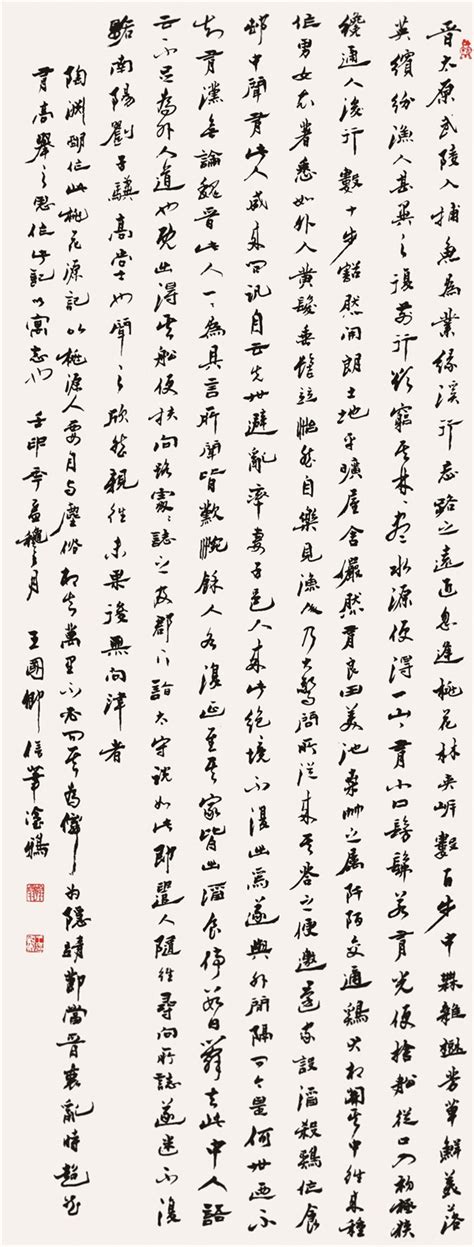 晋太原武陵人捕魚為業緣溪行忘路之遠近忽逢桃花林夾岸數百步中無雜樹芳草鮮美落
英繽紛漁人甚異之復前行欲窮其林林盡水源便得一山山有小口髣髴若有光便捨船從口入初極狹
纔通人復行數十步豁然開朗土地平曠屋舍儼然有良田美池桑竹之属阡陌交通鷄犬相聞其中往来種
作男女衣著悉如外人黄髮垂髫並怡然自樂見漁人乃大驚問所従来具答之便邀還家設酒殺鷄作食
邨中聞有此人咸来問訊自云先世避亂率妻子邑人来此絶境不復出焉遂與外人間隔問今是何世乃不
知有漢無論魏晋此人一一為具言所聞皆歎惋餘人各復延至其家皆出酒食停數日辭去此中人語
云不足為外人道也既出得其船便扶向路處處誌之及郡下詣太守説如此即遣人隨往尋向所誌遂迷不復
南陽劉子驥高尚士也聞之欣然親往未果後無問津者
陶渊明作此桃花源記以桃源人 自与塵俗相去萬里 其為 為隱 當晋衰亂時超然
有高舉之思作此記以寓志也 壬申年 月 王國卿信筆塗鴉